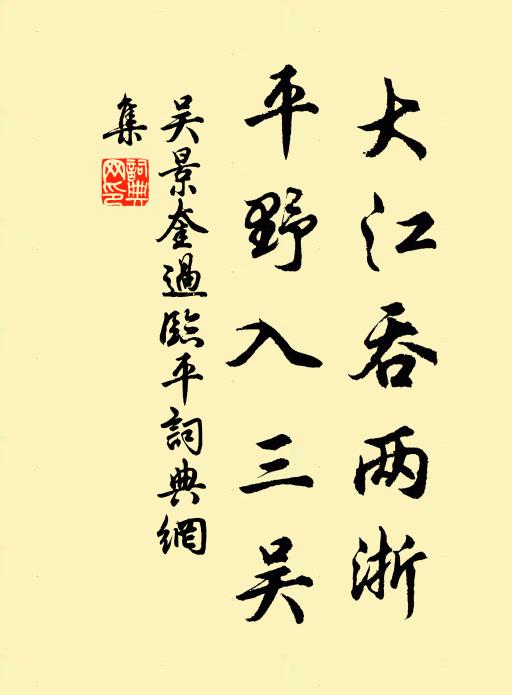 大江吞两浙
平野入三吴
吴景奎過臨平詞典網
集
詞典
网印